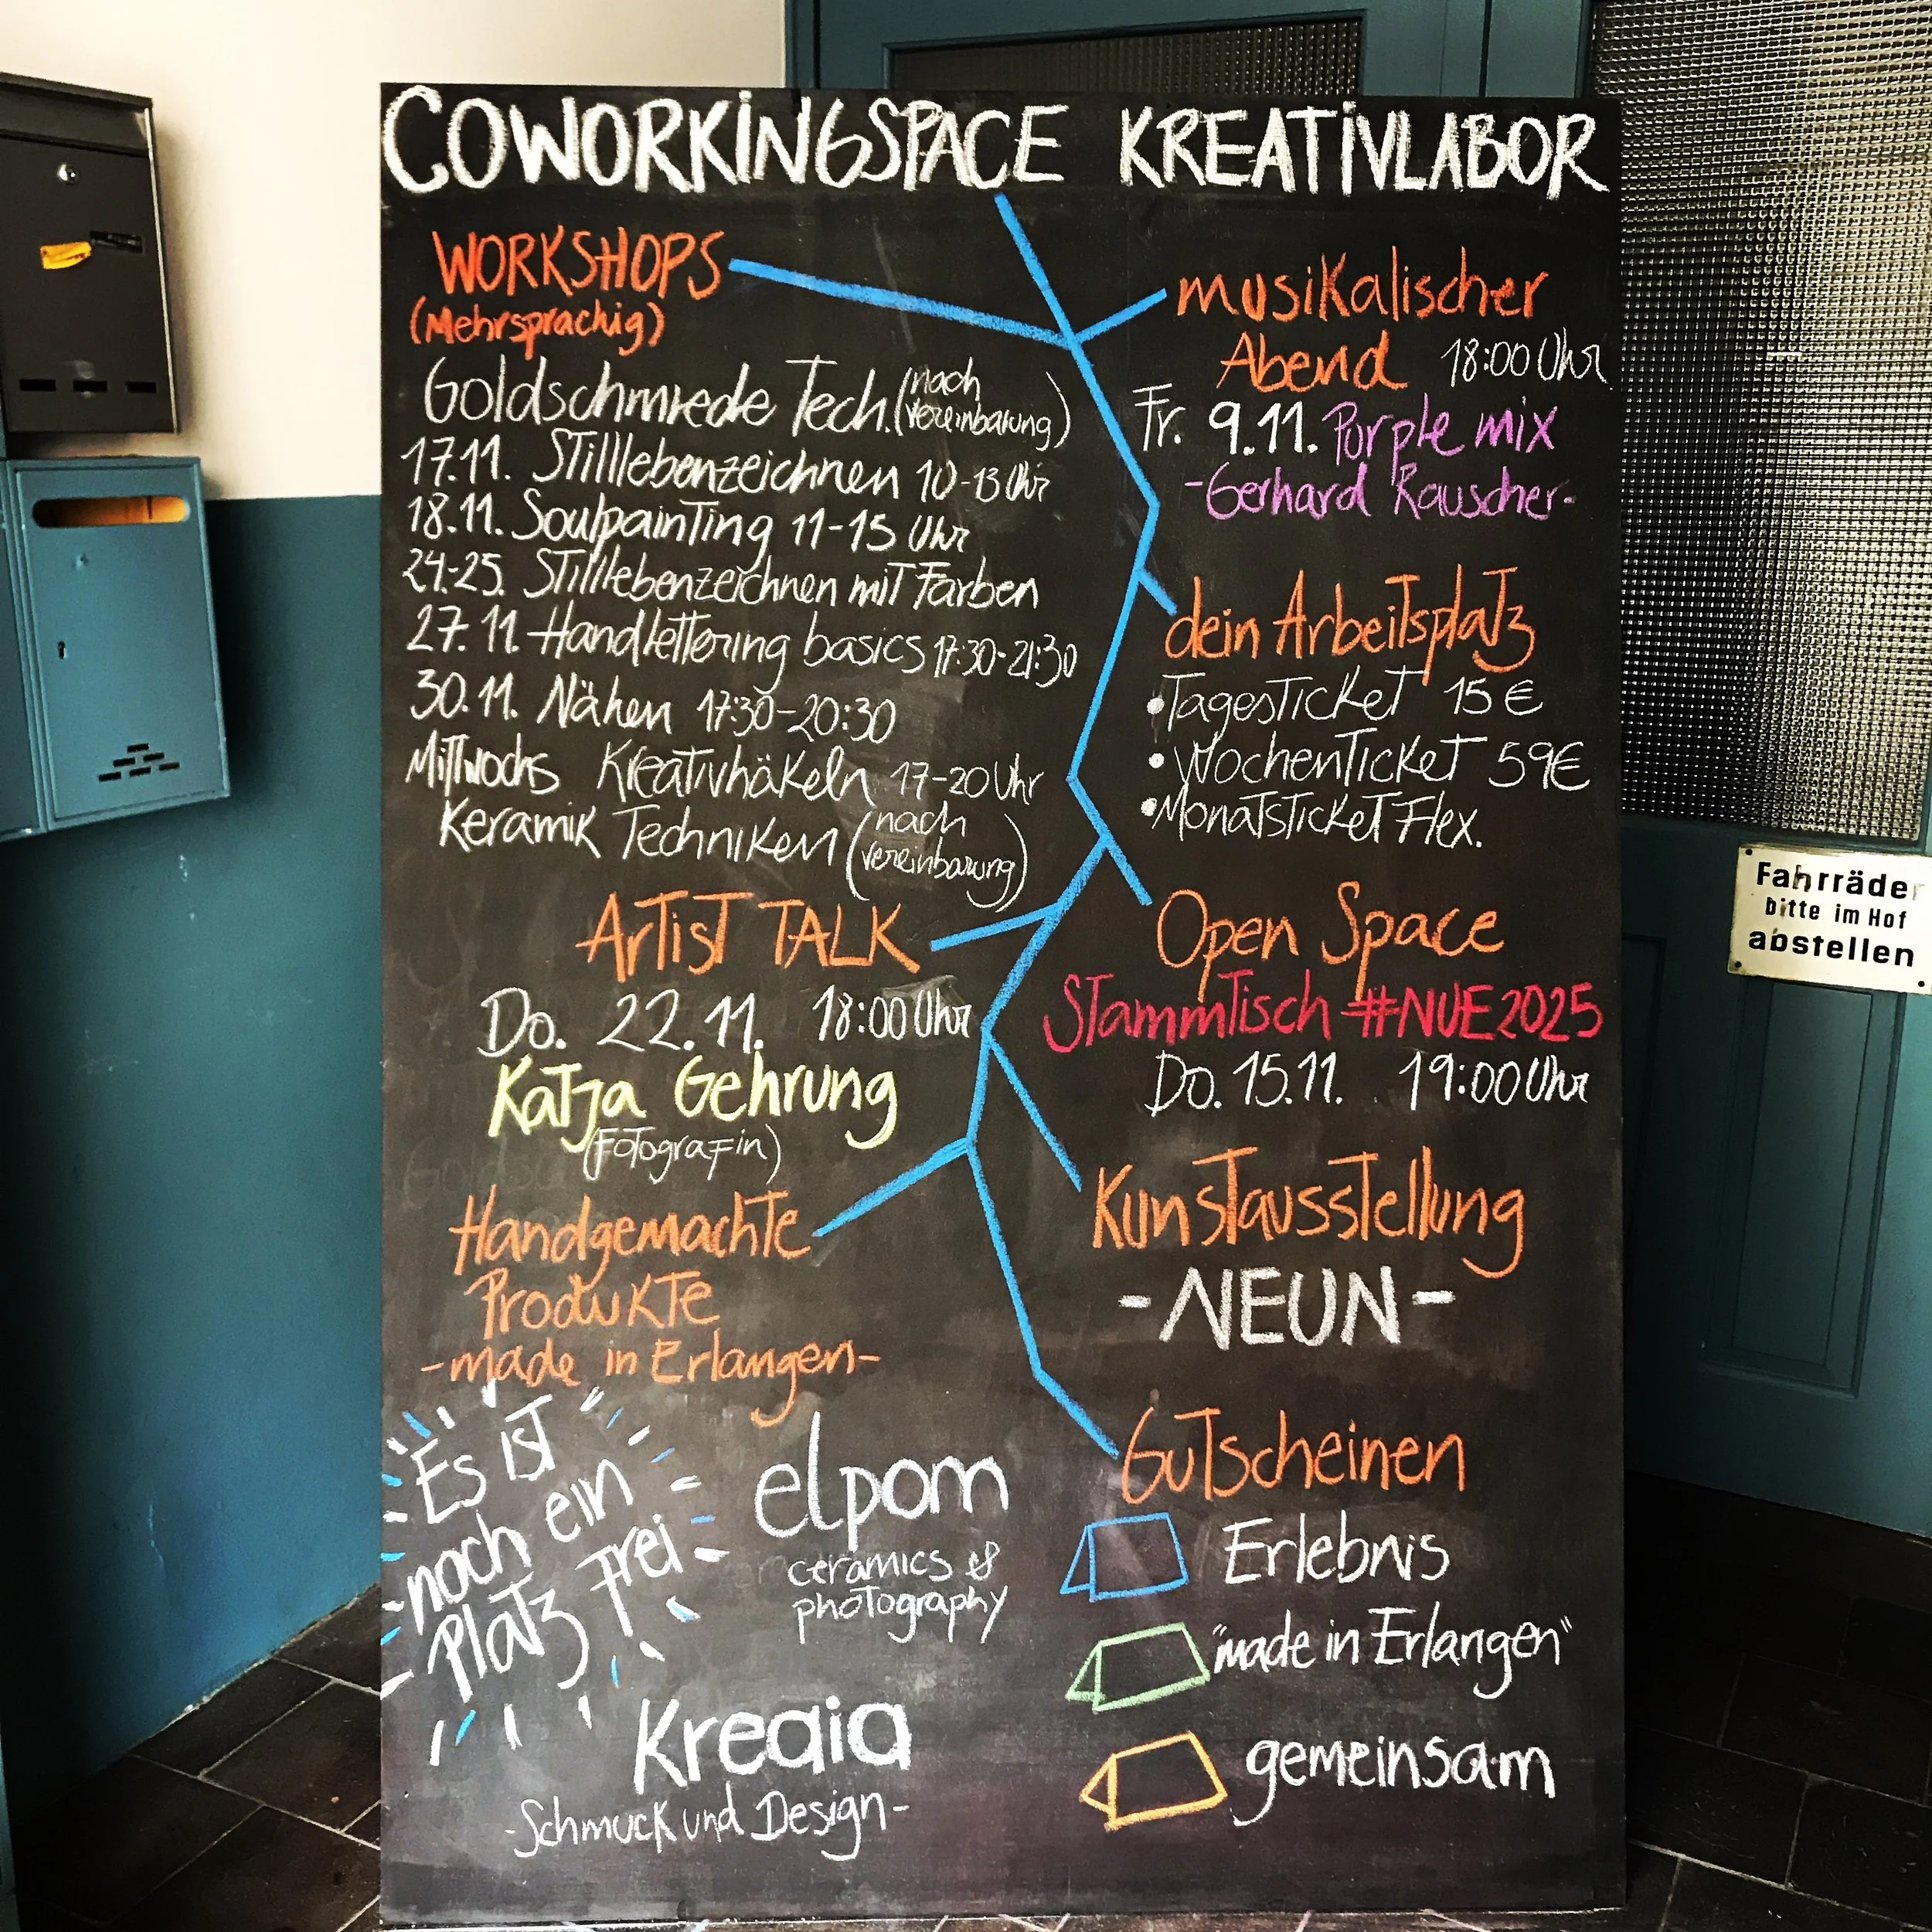 COWORKINGSPACE KREATIVLABOR
WORKSHOPS
(Mehrsprachig)
Goldschmiede Tech. (nach
vereinbarung)
17.11. Stilllebenzeichnen 10-13 Uhr
18.11. Soulpainting 11-15 Uhr
24-25. Stilllebenzeichnen mit Farben
27.11. Handlettering basics 17:30-21:30
30.11. Nähen 17:30-20:30
Mittwochs Kreativhäkeln 17-20 Uhr
Keramik Techniken (nach
vereinbarung)
Artist TALK
Do. 22.11. 18:00 Uhr
Katja Gehrung
(Fotografin)
Handgemachte
Produkte
-made in Erlangen-
Es ist
noch ein
Platz frei
elpom
ceramics &
photography
Kreaia
-Schmuck und Design-
musikalischer
Abend 18:00 Uhr
Fr. 9.11. Purple mix
-Gerhard Rauscher-
dein Arbeitsplatz
•Tagesticket 15€
•Wochenticket 59€
•Monatsticket Flex.
Open Space
Stammtisch #NUE2025
Do. 15.11. 19:00 Uhr
Kunstausstellung
-NEUN-
Gutscheinen
Erlebnis
"made in Erlangen"
gemeinsam
Fahrräder
bitte im Hof
abstellen